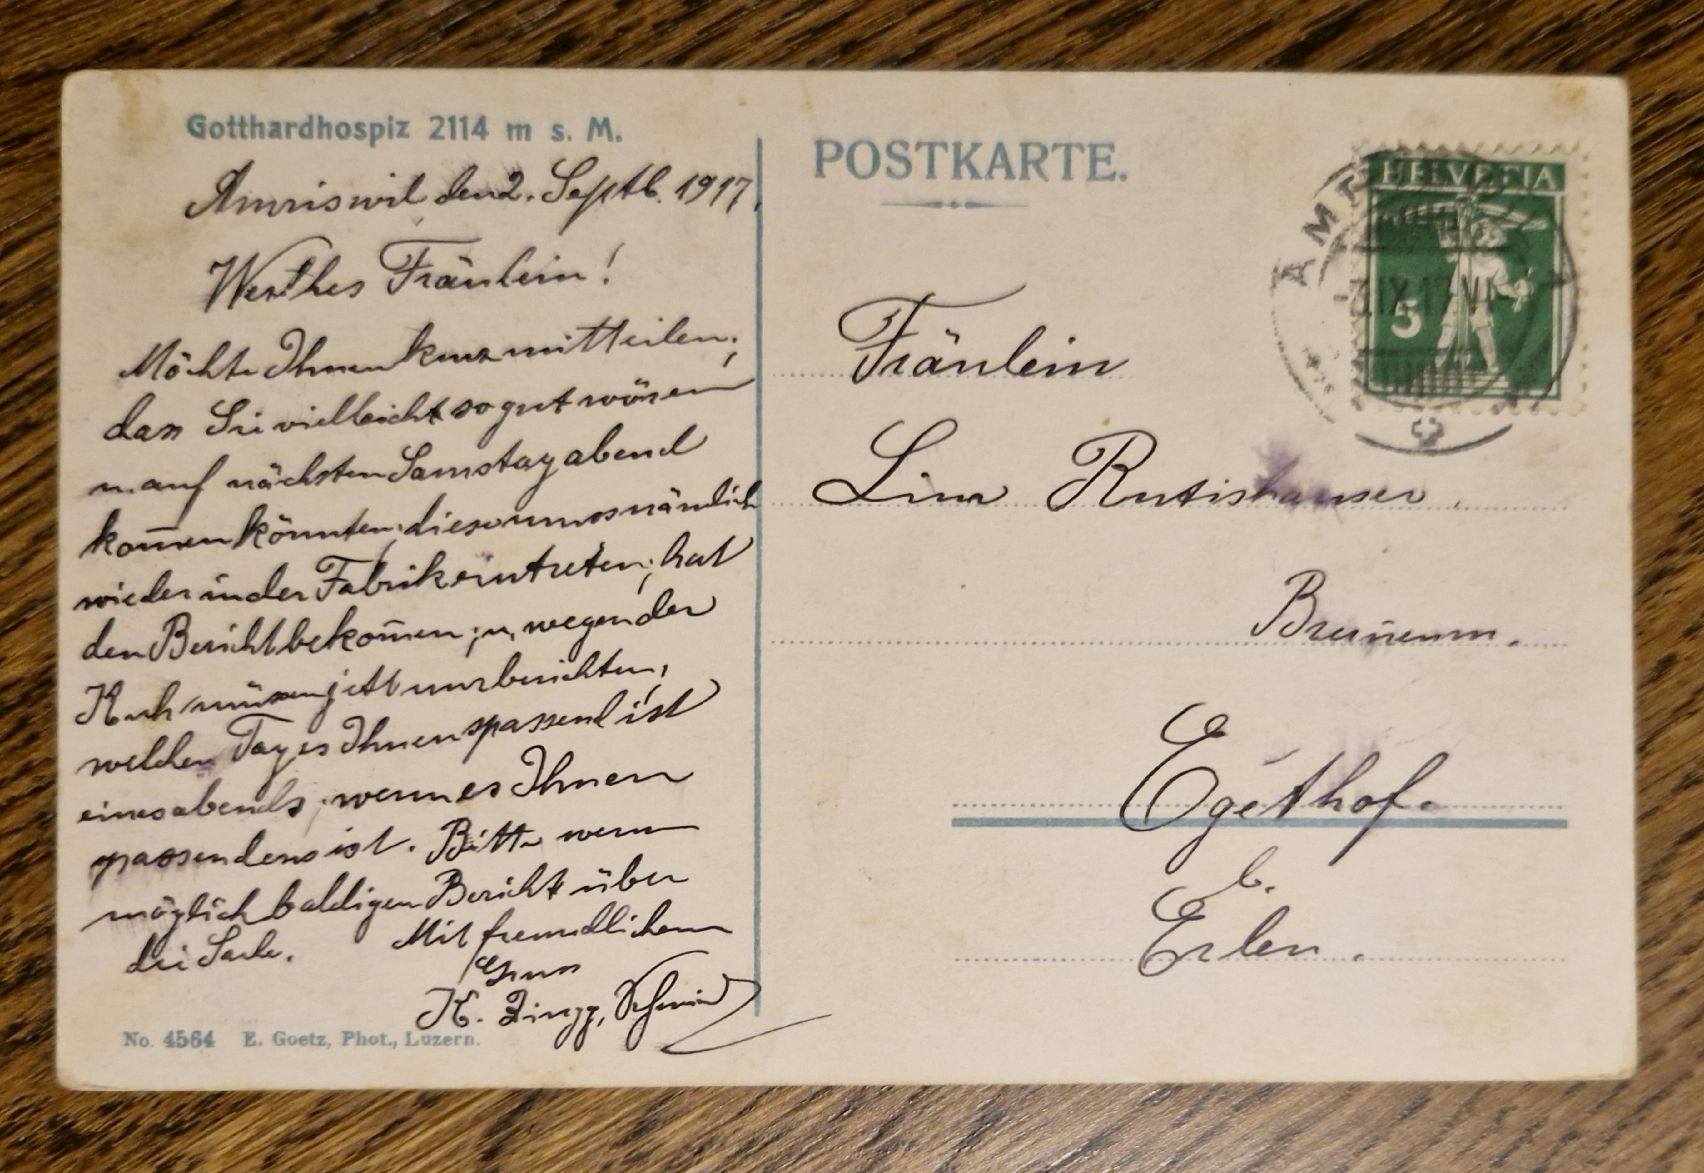 Gotthardhospiz 2114 m s. M.
Amriswil den 2. Septb. 1917.
Werthes Fräulein!
Möchte Ihnen kurz mitteilen,
dass Sie vielleicht so gut wären
u. auf nächsten Samstag abend
kom̄en könnten, diese muss nämlich
wieder in der Fabrik eintreten, hat
den Bericht bekom̄en, u. wegen der
Kuh müssen jett uns berichten,
welchen Tag es Ihnen passend ist
eines abends, wenn es Ihnen
passend ist. Bitte wenn
möglich baldigen Bericht über
die Sache. Mit freundlichem
Gruss
K. Zingg, Schmied
No. 4564 E. Goetz, Phot., Luzern.
POSTKARTE.
HELVETIA
5
IX. 17. VI
Fräulein
Lina Rutishauser.
Egethof.
b.
Erlen.